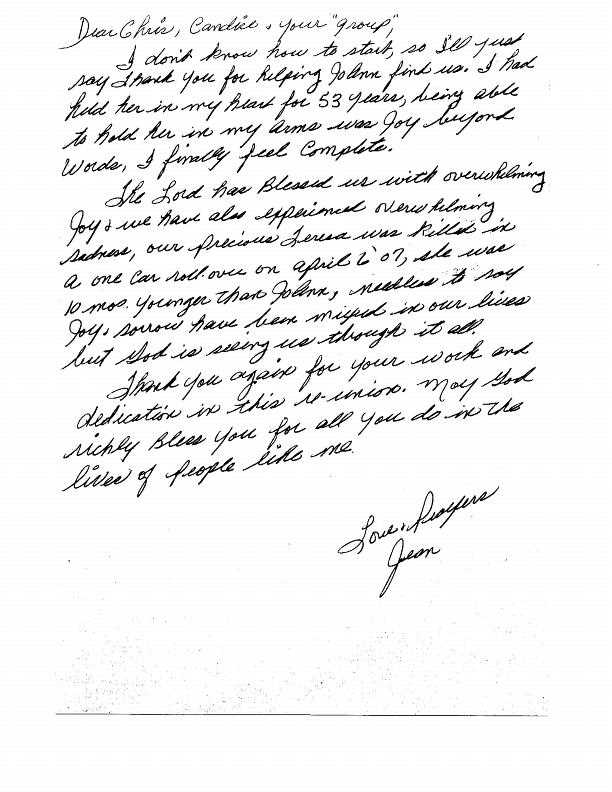 Dear Chris, Candice & your "group",
I don't know how to start, so I'll just
say Thank you for helping JoAnn find us. I had
held her in my heart for 53 years, being able
to hold her in my arms was Joy beyond
Words, I finally feel Complete.
The Lord has Blessed us with overwhelming
Joy & we have also experienced overwhelming
sadness, our precious Teresa was killed in
a one car rollover on april 6 '07, she was
10 mos. younger than JoAnn, needless to say
Joy & sorrow have been mixed in our lives
but God is seeing us through it all.
Thank you again for your work and
dedication in this re-union. May God
richly Bless you for all you do in the
lives of people like me.
Love & Prayers
Jean